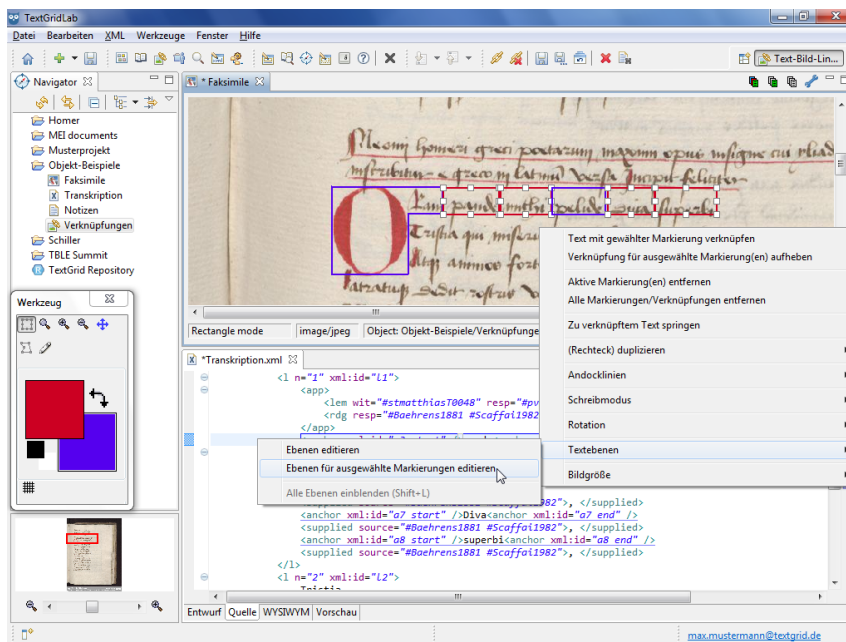 TextGridLab
Datei Bearbeiten XML Werkzeuge Fenster Hilfe
Text-Bild-Lin...
Navigator
* Faksimile
Homer
MEI documents
Musterprojekt
Objekt-Beispiele
Faksimile
Transkription
Notizen
Verknüpfungen
Schiller
TBLE Summit
TextGrid Repository
Werkzeug
Rectangle mode
image/jpeg
Object: Objekt-Beispiele/Verknüpfunge
Text mit gewählter Markierung verknüpfen
Verknüpfung für ausgewählte Markierung(en) aufheben
Aktive Markierung(en) entfernen
Alle Markierungen/Verknüpfungen entfernen
Zu verknüpftem Text springen
(Rechteck) duplizieren
Andocklinien
Schreibmodus
Rotation
Textebenen
Bildgröße
*Transkription.xml
<l n="1" xml:id="l1">
<app>
<lem wit="#stmatthiasT0048" resp="#pv
<rdg resp="#Baehrens1881 #Scaffai1982
</app>
Ebenen editieren
Ebenen für ausgewählte Markierungen editieren
Alle Ebenen einblenden (Shift+L)
982">, </supplied>
<anchor xml:id="a7_start" />Diva<anchor xml:id="a7_end" />
<supplied source="#Baehrens1881 #Scaffai1982">, </supplied>
<anchor xml:id="a8_start" />superbi<anchor xml:id="a8_end" />
<supplied source="#Baehrens1881 #Scaffai1982">, </supplied>
</l>
<l n="2" xml:id="l2">
Tristia
Entwurf Quelle WYSIWYM Vorschau
max.mustermann@textgrid.de